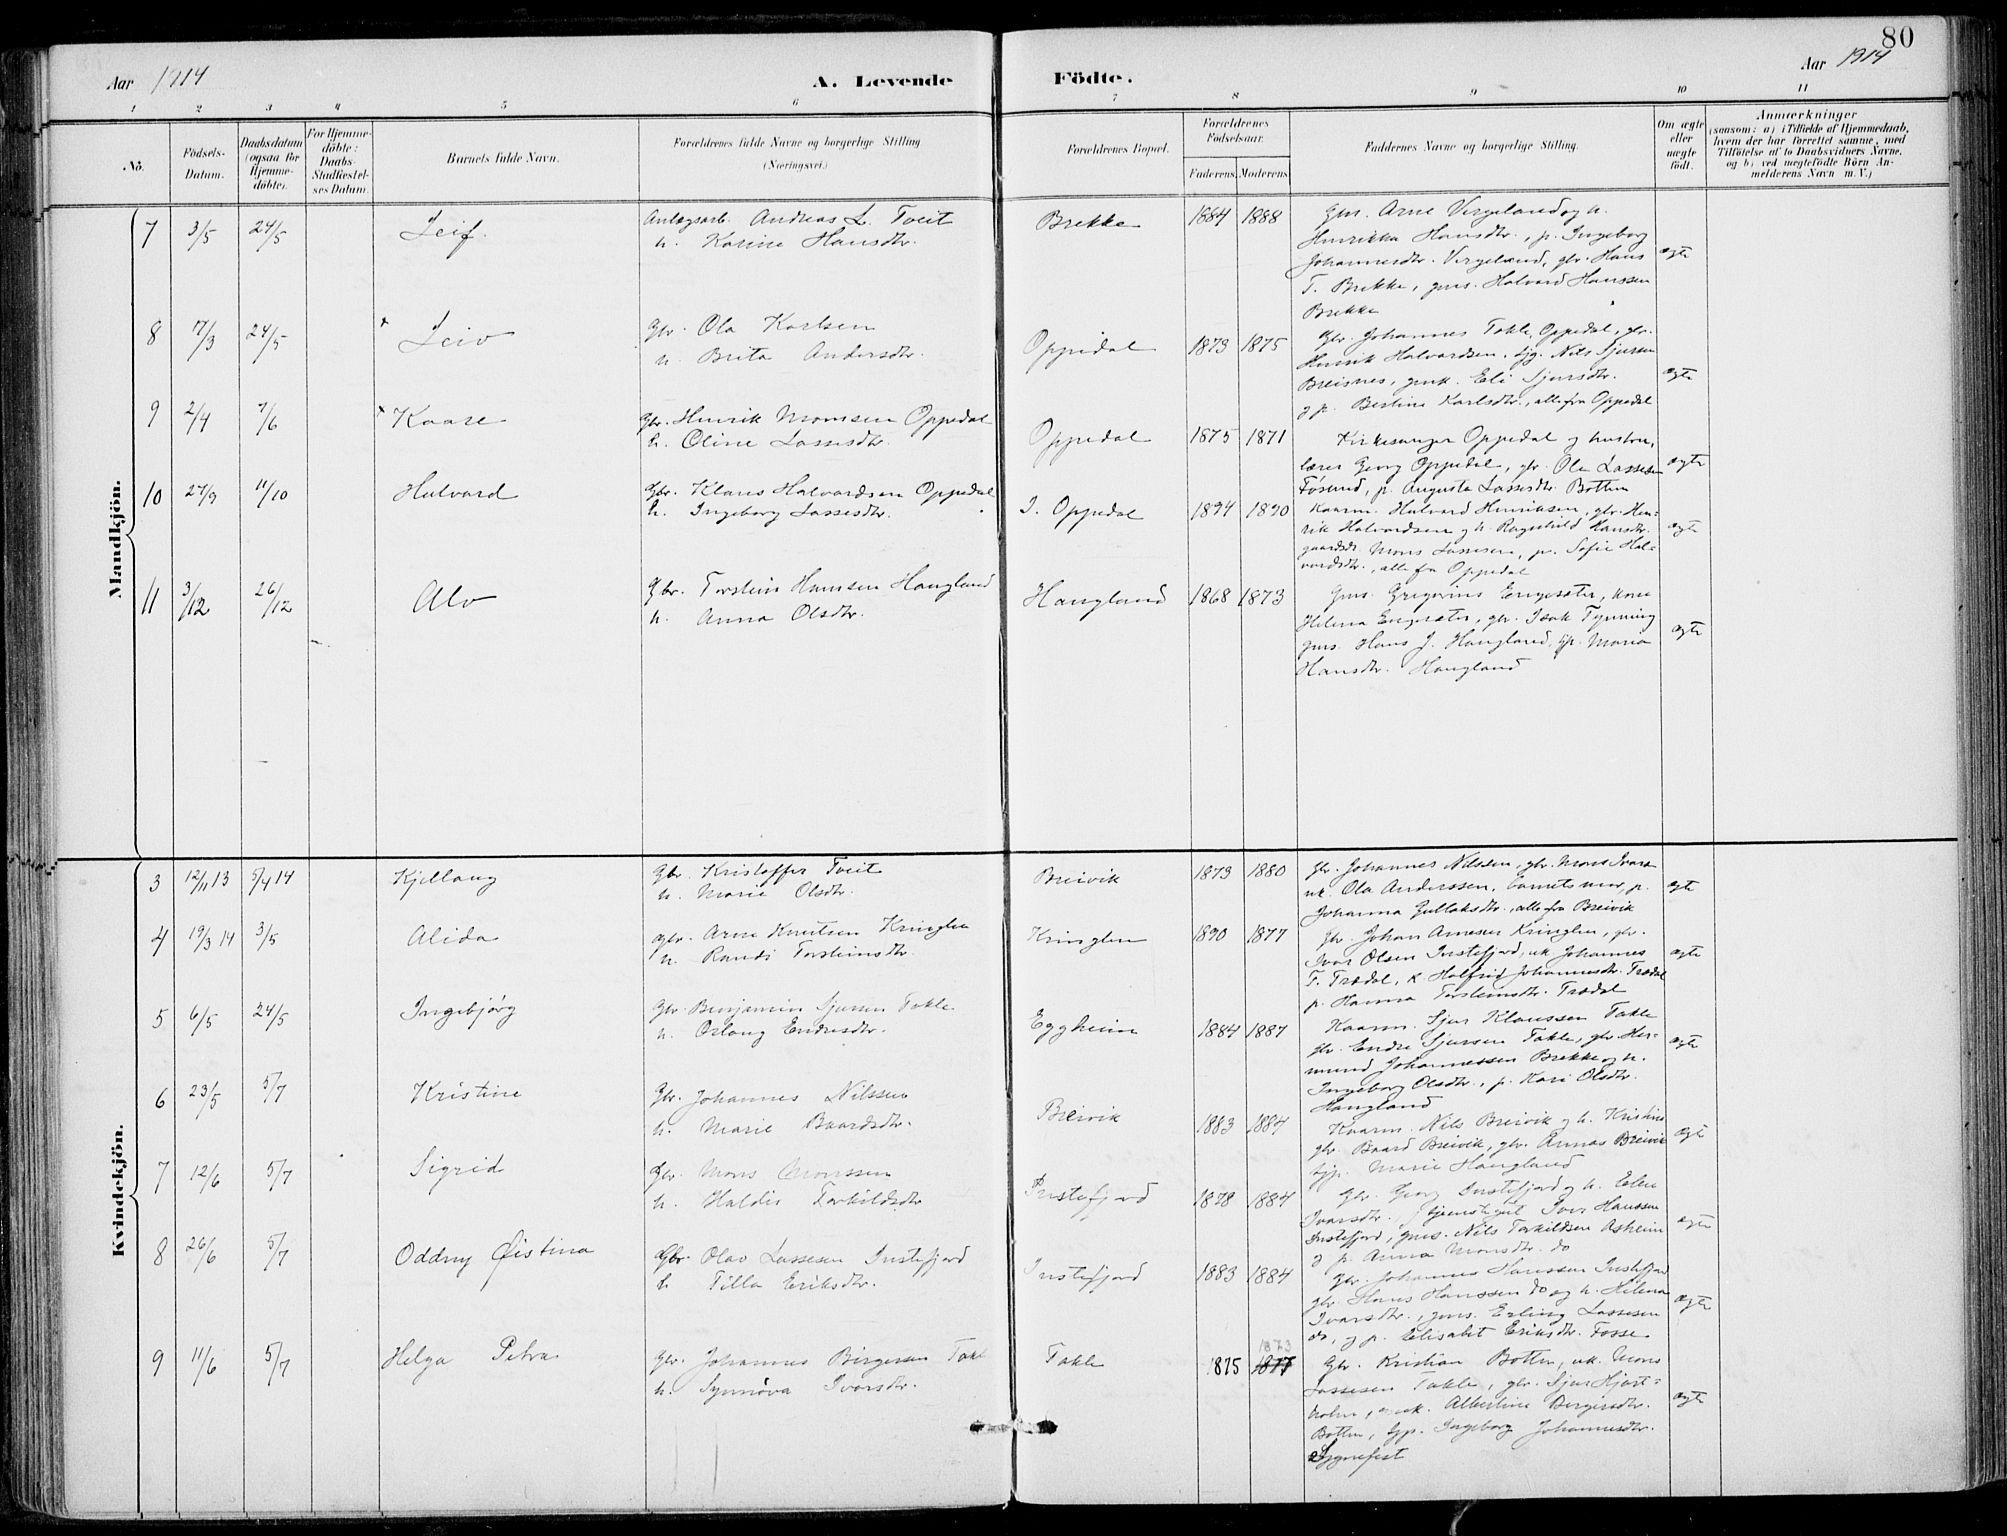 80
Aar 1914
A. Levende
Födte.
Aar 1914
1 2 3 4 5 6 7 8 9 10 11
No.
Födsels-
Datum.
Daabsdatum
(ogsaa for
Hjemme-
döbte).
For Hjemme-
döbte:
Daabs-
Stadfæstel-
ses Datum.
Barnets fulde Navn.
Forældrenes fulde Navne og borgerlige Stilling
(Næringsvei.)
Forældrenes Bopæl.
Forældrenes
Födselsaar.
Faderens. Moderens.
Faddernes Navne og borgerlige Stilling.
Om ægte
eller
uægte
födt.
Anmærkninger
(saasom: a) i Tilfælde af Hjemmedaab,
hvem der har forrettet samme, med
Tilföielse af to Daabsvidners Navne,
og b) ved uægtefödte Börn An-
melderens Navn m. V.)
Mandkjön.
7 3/5 24/5 Leif.
Anlægsarb. Andreas L. Tveit
h. Karine Hansdtr.
Brekke 1884 1888
Gms. Arne Vergeland og h.
Henrikka Hansdtr., p. Ingeborg
Johannesdtr. Vergeland, gbr. Hans
T. Brekke, gms. Halvard Hanssen
Brekke
ægte
8 7/3 24/5 Leiv
Gbr. Ola Karlsen
h. Brita Andersdtr.
Oppedal 1873 1875
Gbr. Johannes Takle, Oppedal, gbr.
Henrik Halvardsen, Nils Sjursen
Breisnes, gmk. Eli Sjursdtr.
g p. Bertine Karlsdtr., alle fra Oppedal
ægte
9 2/4 7/6 Kaare
Gbr. Henrik Monssen Oppedal
h. Oline Lassesdtr.
Oppedal 1875 1871
Kirkesanger Oppedal og hustru,
lærer Georg Oppedal, gbr. Ola Lassesen
p. Augusta Lassesdtr. Botten
ægte
10 27/9 11/10 Halvard
Gbr. Klaus Halvardsen Oppedal
h. Ingeborg Lassesdtr.
I. Oppedal 1894 1890
Kaarm. Halvard Henriksen, gbr. Hen-
rik Halvardsen og h. Ragnhild Hansdtr.
Mons Lassesen, p. Sofie Hal-
vardsdtr., alle fra Oppedal
ægte
11 3/12 26/12 Alv
Gbr. Torstein Hansen Haugland
h. Anna Olsdtr.
Haugland 1868 1873
Gms. Gregorius Engesæter, kone
Helena Engesæter, gbr. Isak Tynning
gms. Hans J. Haugland, p. Maria
Hansdtr. Haugland
ægte
Kvindekjön.
3 12/11 13 5/4 14 Kjellaug
Gbr. Kristoffer Tveit
h. Marie Olsdtr.
Breivik 1873 1880
Gbr. Johannes Nilssen, gbr. Mons
uk. Ola Anderssen, barnets mor, p.
Johanna Gullaksdtr., alle fra Breivik
ægte
4 19/3 14 3/5 Alida
Gbr. Arne Knutsen Kringlen
h. Randi Torsteinsdtr.
Kringlen 1890 1877
Gbr. Johan Arnesen Kringlen, gbr.
Ivar Olsen Instefjord, uk Johannes
T. Trædal, k. Halfrid Johannesdtr. Trædal
p. Hanna Torsteinsdtr. Trædal
ægte
5 6/5 24/5 Ingebjørg
Gbr. Benjamin Sjursen Takle
h. Oslaug Endresdtr.
Eggheim 1884 1887
Kaarm. Sjur Klaussen Takle
gbr. Endre Sjursen Takle, gbr Her-
mund Johannessen Brekke og h.
Ingeborg Olsdtr., p. Kari Olsdtr.
Haugland
ægte
6 23/5 5/7 Kristine
Gbr. Johannes Nilssen
h. Marie Baardsdtr.
Breivik 1883 1884
Kaarm. Nils Breivik og h. Kristine
gbr. Baard Breivik, gbr. Annas Breivik
tjp. Marie Haugland
ægte
7 12/6 5/7 Sigrid
Gbr. Mons Monssen
h. Haldis Torkildsdtr
Instefjord 1878 1884
Gbr. Georg Instefjord og h. Elen
Ivarsdtr., Iver Hanssen
Instefjord, gms. Nils Torkildsen Asheim
g p. Anna Monsdtr. do
ægte
8 26/6 5/7 Oddny Øistina
Gbr Olav Lassesen Instefjord
h. Tilla Eriksdtr.
Instefjord 1883 1884
Gbr. Johannes Hanssen Instefjord
gbr. Hans Hanssen do og h. Helena
Ivarsdtr., gms. Erling Lassesen
do, g p. Elisabet Eriksdtr. Fosse
ægte
9 11/6 5/7 Helga Petra
Gbr. Johannes Birgersen Takle
h. Synnøva Ivarsdtr.
Takle 1875 1877 1873
Gbr. Kristian Botten, uk. Mons
Lassesen Takle, gbr. Sjur Hjart-
holm, Albertine Bergersdtr.
Botten, tjp. Ingeborg Johannesdtr.
Sygnefest
ægte